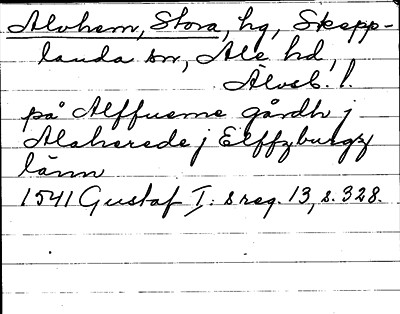 Alvhem, Stora, hg, Skepp-
landa sn, Ale hd,
Älvsb. l.
på Alffueme gårdh j
Alaherede j Elffzburgz
länn
1541 Gustaf I:s reg. 13, s. 328.